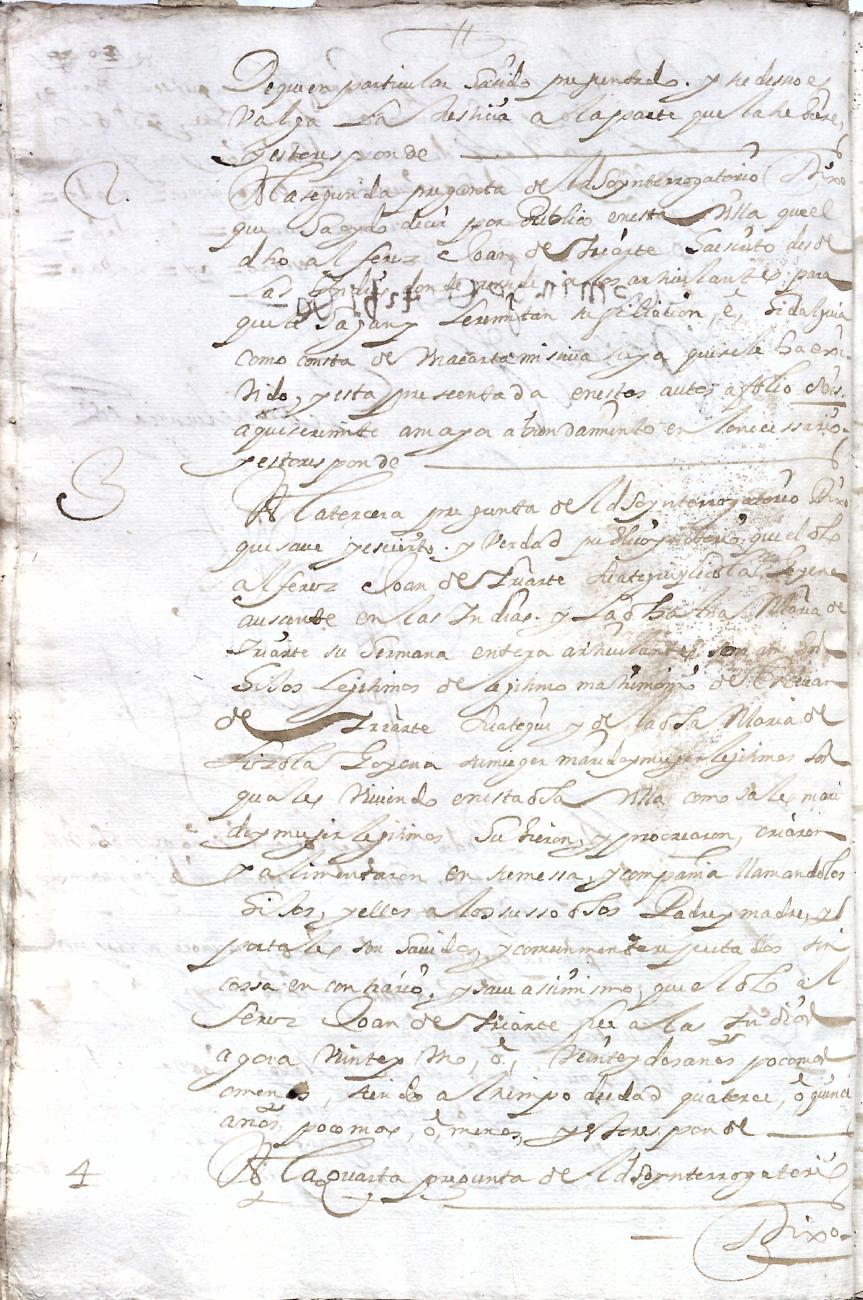 De que en particular hasido preguntado. y se deseo es
Valga la Justicia a la parte que la hubiere,
y esto responde
2. A la segunda pregunta del dho ynterrogatorio Dixo
que ha oydo decir por publico en esta Villa que el
dho alferez Joan de Yriarte ha escrito desde
Las Yndias donde reside a los articulantes para
que le hagan y Remitan su filiacion, è, hidalguia
como consta de Una carta misiua suya que se le ha exiui
Uido, y esta presentada en estos autos a folio dos.
a que se remite a mayor abundamiento en lo necessario
y esto responde
3 A la tercera pregunta del dho ynterrogatorio Dixo
que saue y es cierto. y Verdad publico y notorio, que el dho
alferez Joan de Yriarte y Licola Goyena
auscente en las Yndias. y la dha Ana Maria de
Yriarte su hermana entera articulantes son
hijos Lejitimos de lejitimo matrimonio de
de Yriarte y de la dha Maria de
Goyena su muger marido y mujer lejitimos los
quales Viviendo en esta dha Villa como tales mari
do y mujer lejitimos hubieron, y procrearon, criaron
y alimentaron en su messa, y compañia llamandolos
hijos, y ellos a los susso dhos Padre y madre, y
por tales son hauidos, y comunmente reputados sin
cossa en contrario, y saue assimismo, que el dho al
ferez Joan de Yriarte fue a las Yndias
agora Veinte y Uno, ò, Veinte y dos años poco mas
o menos, siendo al tiempo de edad quatorce, ò quince
años, poco mas, ò, menos, y esto responde
4 A la quarta pregunta del dho ynterrogatorio
Dixo